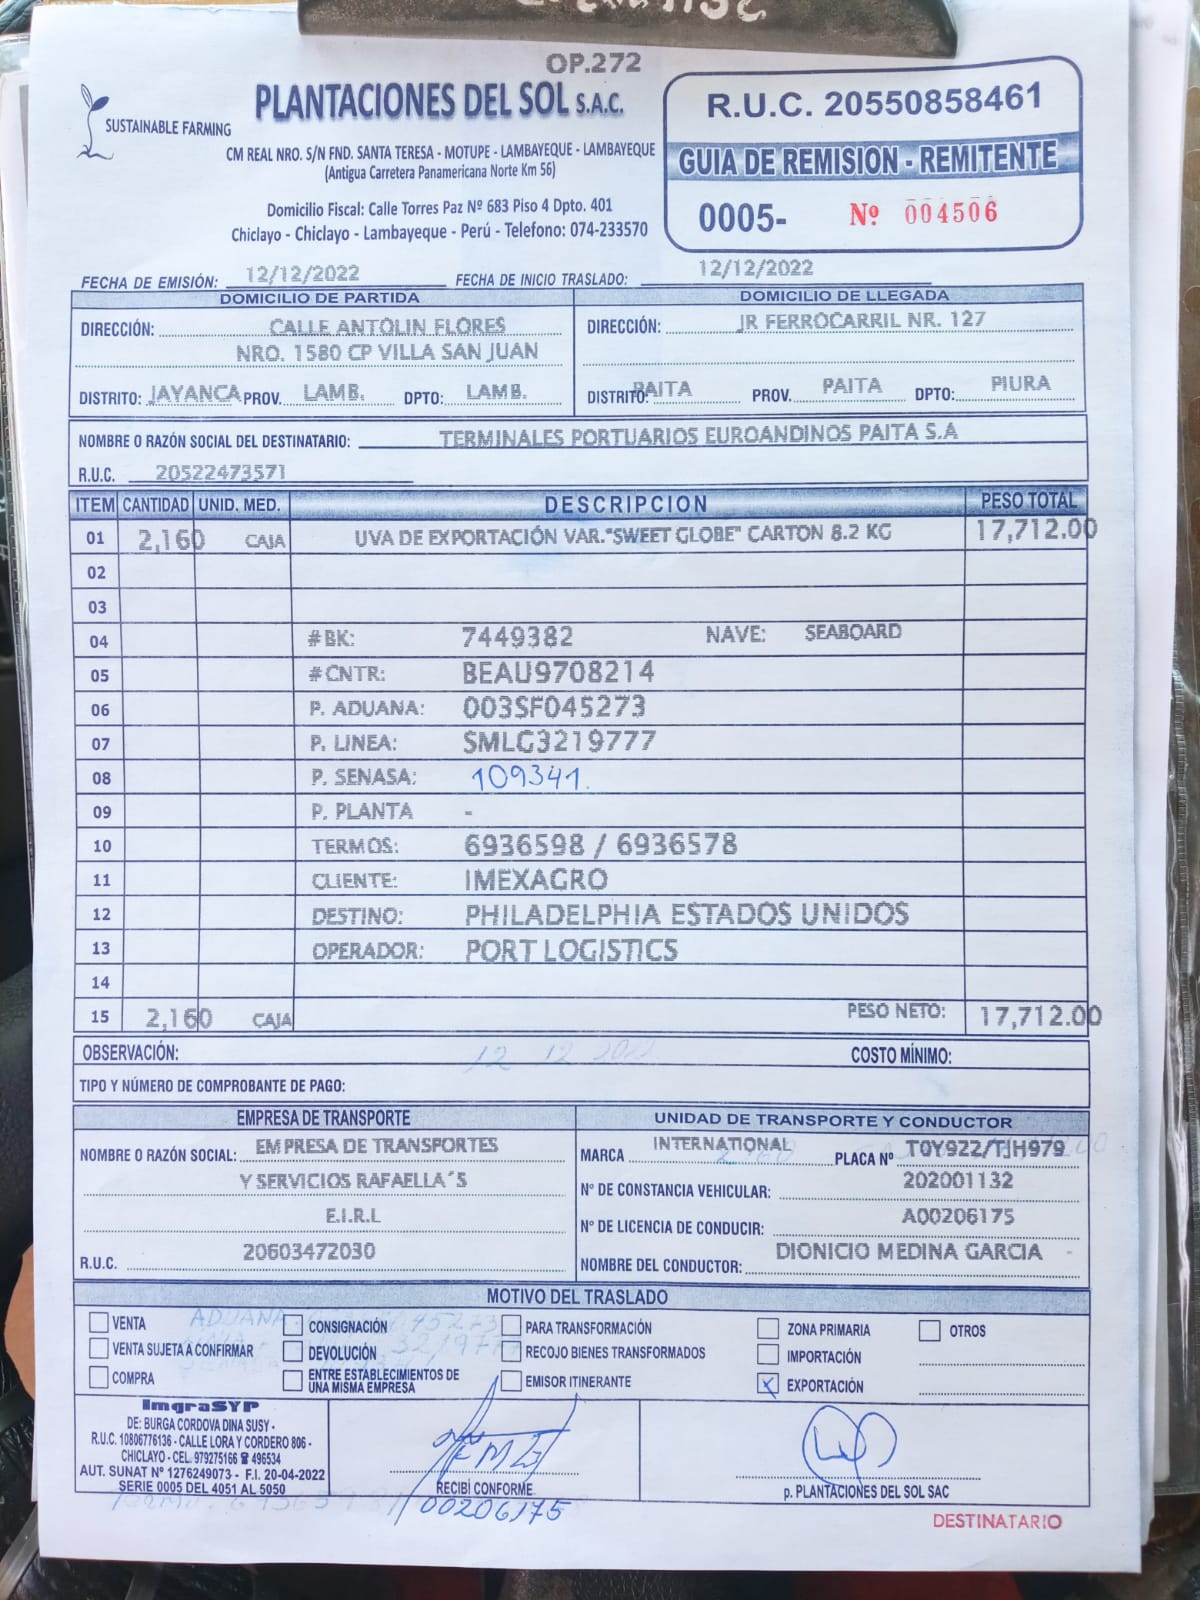 OP.272
SUSTAINABLE FARMING
PLANTACIONES DEL SOL S.A.C.
CM REAL NRO. S/N FND. SANTA TERESA - MOTUPE - LAMBAYEQUE - LAMBAYEQUE
(Antigua Carretera Panamericana Norte Km 56)
Domicilio Fiscal: Calle Torres Paz Nº 683 Piso 4 Dpto. 401
Chiclayo - Chiclayo - Lambayeque - Perú - Telefono: 074-233570
R.U.C. 20550858461
GUIA DE REMISION - REMITENTE
0005- Nº 004506
FECHA DE EMISIÓN: 12/12/2022 FECHA DE INICIO TRASLADO: 12/12/2022
DOMICILIO DE PARTIDA
DIRECCIÓN: CALLE ANTOLIN FLORES
NRO. 1580 CP VILLA SAN JUAN
DISTRITO: JAYANCA PROV. LAMB. DPTO: LAMB.
DOMICILIO DE LLEGADA
DIRECCIÓN: JR FERROCARRIL NR. 127
DISTRITO: PAITA PROV. PAITA DPTO: PIURA
NOMBRE O RAZÓN SOCIAL DEL DESTINATARIO: TERMINALES PORTUARIOS EUROANDINOS PAITA S.A
R.U.C. 20522473571
ITEM CANTIDAD UNID. MED. DESCRIPCION PESO TOTAL
01 2,160 CAJA UVA DE EXPORTACIÓN VAR."SWEET GLOBE" CARTON 8.2 KG 17,712.00
02
03
04 #BK: 7449382 NAVE: SEABOARD
05 #CNTR: BEAU9708214
06 P. ADUANA: 003SF045273
07 P. LINEA: SMLG3219777
08 P. SENASA: 109341.
09 P. PLANTA -
10 TERMOS: 6936598 / 6936578
11 CLIENTE: IMEXAGRO
12 DESTINO: PHILADELPHIA ESTADOS UNIDOS
13 OPERADOR: PORT LOGISTICS
14
15 2,160 CAJA PESO NETO: 17,712.00
OBSERVACIÓN: 12 12 2022 COSTO MÍNIMO:
TIPO Y NÚMERO DE COMPROBANTE DE PAGO:
EMPRESA DE TRANSPORTE
NOMBRE O RAZÓN SOCIAL: EMPRESA DE TRANSPORTES
Y SERVICIOS RAFAELLA´S
E.I.R.L
R.U.C. 20603472030
UNIDAD DE TRANSPORTE Y CONDUCTOR
MARCA INTERNATIONAL PLACA Nº T0Y922/TJH979
Nº DE CONSTANCIA VEHICULAR: 202001132
Nº DE LICENCIA DE CONDUCIR: A00206175
NOMBRE DEL CONDUCTOR: DIONICIO MEDINA GARCIA
MOTIVO DEL TRASLADO
VENTA CONSIGNACIÓN PARA TRANSFORMACIÓN ZONA PRIMARIA OTROS
VENTA SUJETA A CONFIRMAR DEVOLUCIÓN RECOJO BIENES TRANSFORMADOS IMPORTACIÓN
COMPRA ENTRE ESTABLECIMIENTOS DE UNA MISMA EMPRESA EMISOR ITINERANTE X EXPORTACIÓN
ADUANA
ImgraSYP
DE: BURGA CORDOVA DINA SUSY -
R.U.C. 10806776136 - CALLE LORA Y CORDERO 806 -
CHICLAYO - CEL. 979275166 ☎ 496534
AUT. SUNAT Nº 1276249073 - F.I. 20-04-2022
SERIE 0005 DEL 4051 AL 5050
RECIBÍ CONFORME
00206175
p. PLANTACIONES DEL SOL SAC
DESTINATARIO